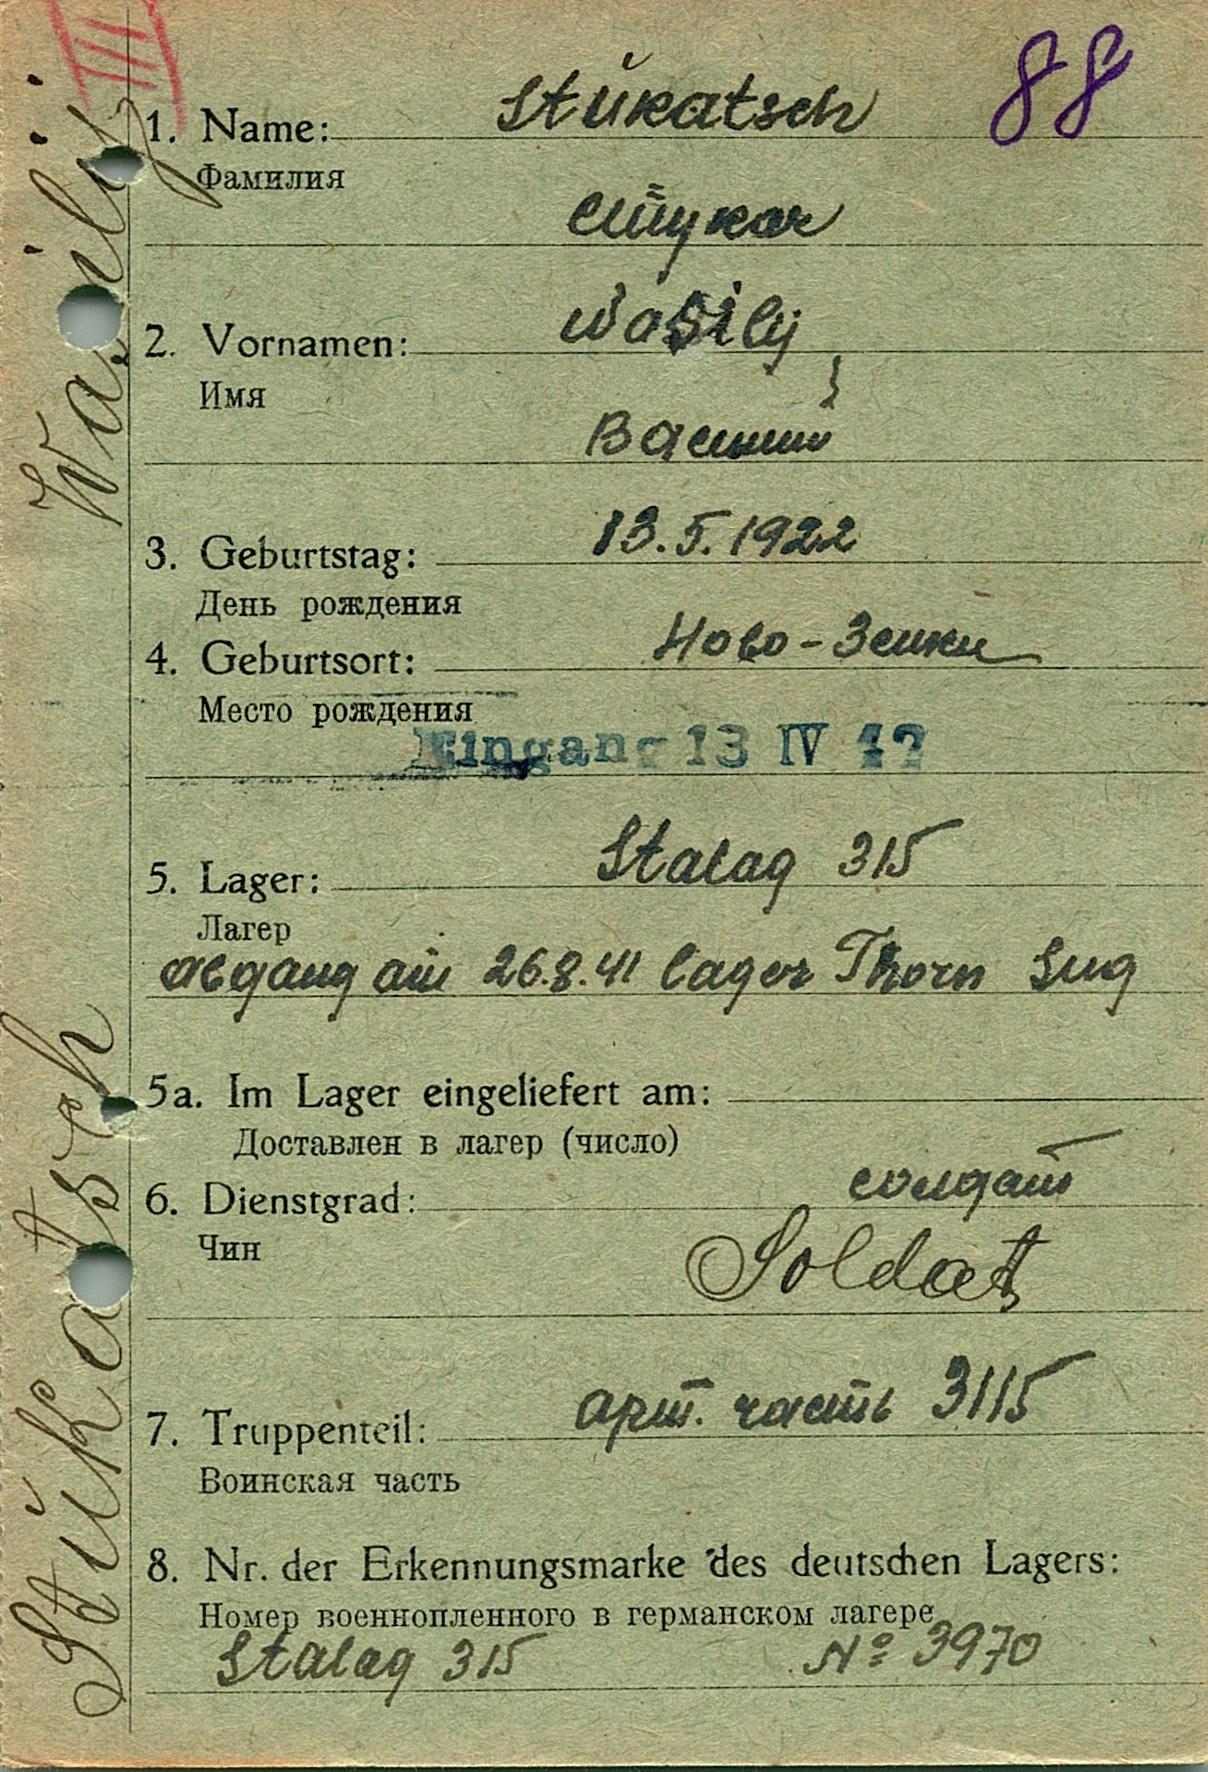 III
88
1. Name: Stukatsch
Фамилия
Стукач
2. Vornamen: Wasilij
Имя
Василий
3. Geburtstag: 13.5.1922
День рождения
4. Geburtsort: Ново-Зенки
Место рождения
Eingang 13 IV 42
5. Lager: Stalag 315
Лагер
Abgang am 26.8.41 Lager Thorn
5a. Im Lager eingeliefert am:
Доставлен в лагер (число)
6. Dienstgrad: солдат
Чин
Soldat
7. Truppenteil: арт. часть 3115
Воинская часть
8. Nr. der Erkennungsmarke des deutschen Lagers:
Номер военнопленного в германском лагере
Stalag 315 № 3970
Stukatsch Wasilij